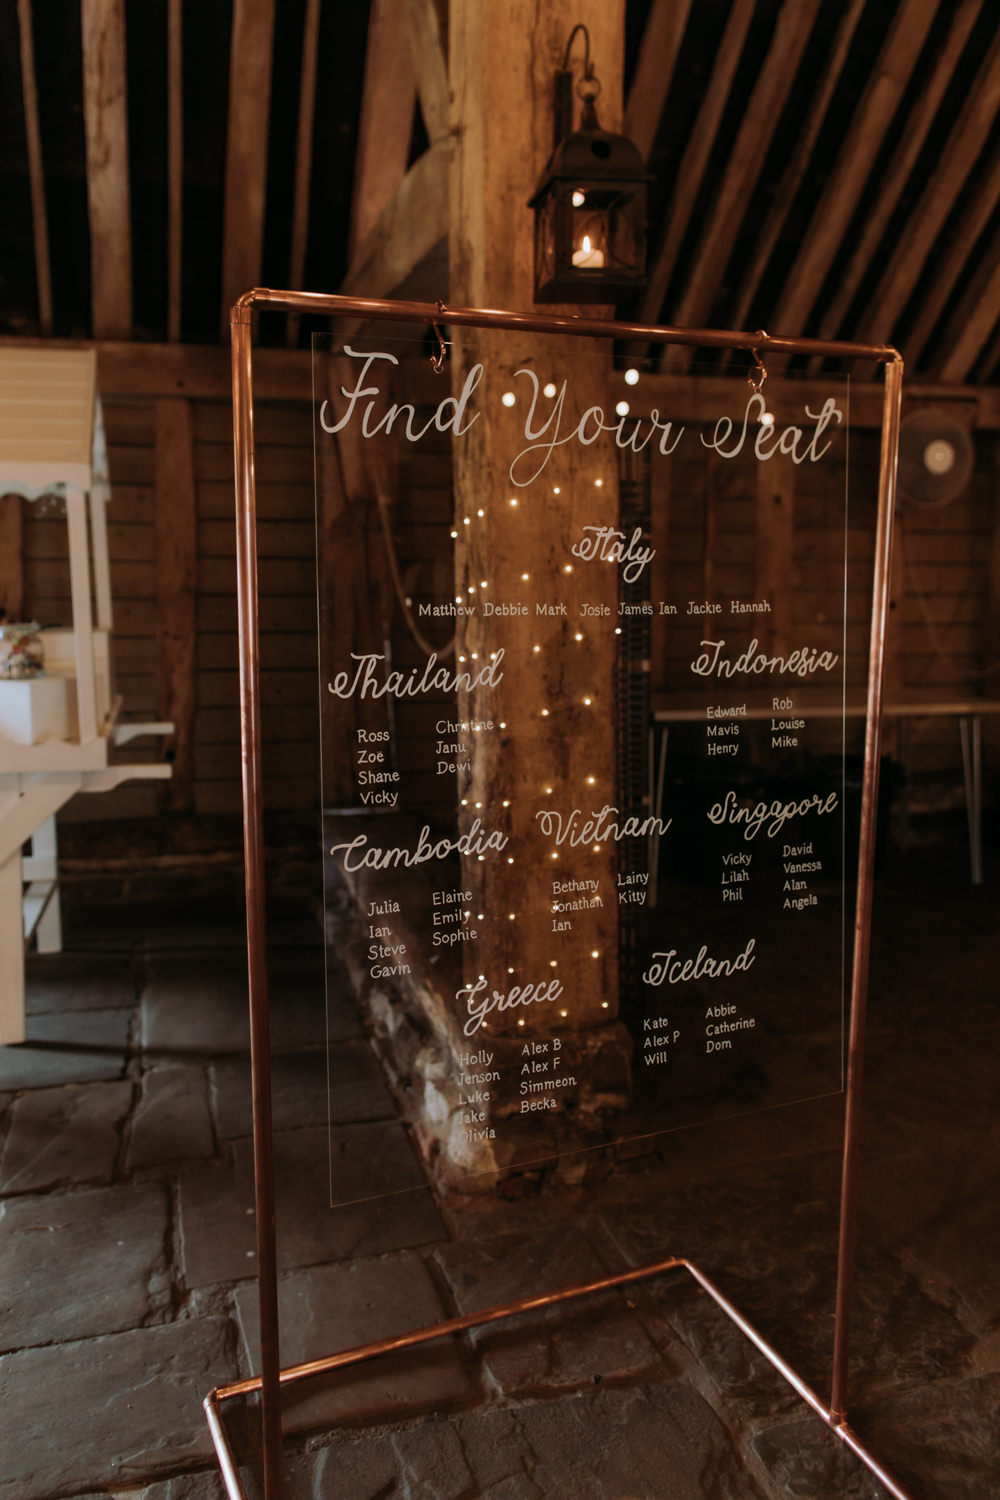 Find Your Seat
Italy
Matthew Debbie Mark Josie James Ian Jackie Hannah
Thailand
Ross Christine
Zoë Janu
Shane Dewi
Vicky
Indonesia
Edward Rob
Mavis Louise
Henry Mike
Cambodia
Julia Elaine
Ian Emily
Steve Sophie
Gavin
Vietnam
Bethany Lainy
Jonathan Kitty
Ian
Singapore
Vicky David
Lilah Vanessa
Phil Alan
Angela
Greece
Holly Alex B
Jenson Alex F
Luke Simmeon
Jake Becka
Olivia
Iceland
Kate Abbie
Alex P Catherine
Will Dom